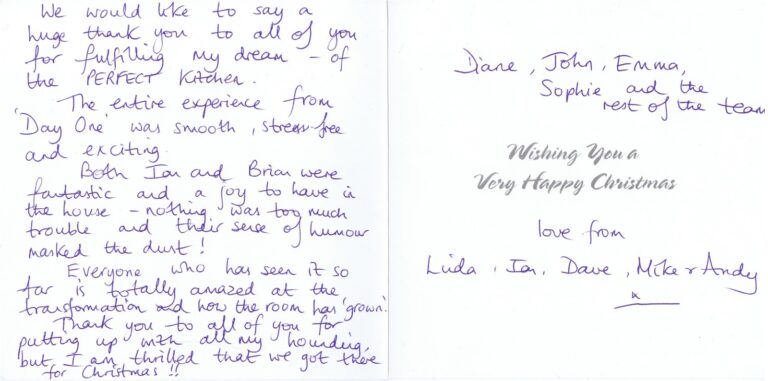 We would like to say a
huge thank you to all of you
for fulfilling my dream - of
the PERFECT Kitchen.
The entire experience from
'Day One' was smooth, stress-free
and exciting.
Both Ian and Brian were
fantastic and a joy to have in
the house - nothing was too much
trouble and their sense of humour
masked the dust!
Everyone who has seen it so
far is totally amazed at the
transformation and how the room has 'grown'.
Thank you to all of you for
putting up with all my hounding,
but I am thrilled that we got there
for Christmas!!
Diane, John, Emma,
Sophie and the
rest of the team
Wishing You a
Very Happy Christmas
love from
Linda, Ian, Dave, Mike & Andy
x